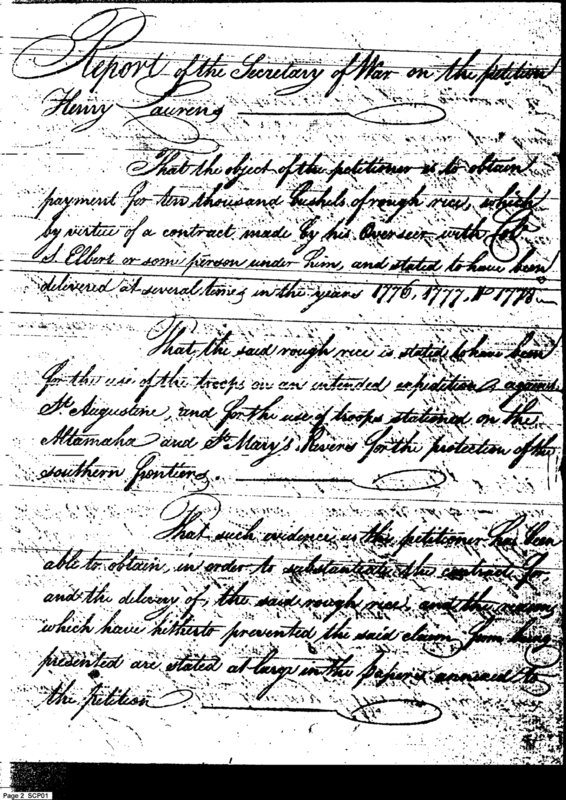 Report of the Secretary of War on the petition
Henry Laurens
That the object of the petitioner is to obtain
payment for ten thousand bushels of rough rice, which
by virtue of a contract made by his Overseer with Col.
S. Elbert or some person under him, and stated to have been
delivered at several times in the years 1776, 1777, & 1778
That the said rough rice is stated to have been
for the use of the troops on an intended expedition against
St. Augustine, and for the use of troops stationed on the
Altamaha and St. Mary's Rivers for the protection of the
southern frontiers.
That such evidence as the petitioner has been
able to obtain, in order to substantiate the contract for
and the delivery of, the said rough rice, and the reasons
which have hitherto prevented the said claim from being
presented are stated at large in the papers annexed to
the petition
Page 2 SCP01